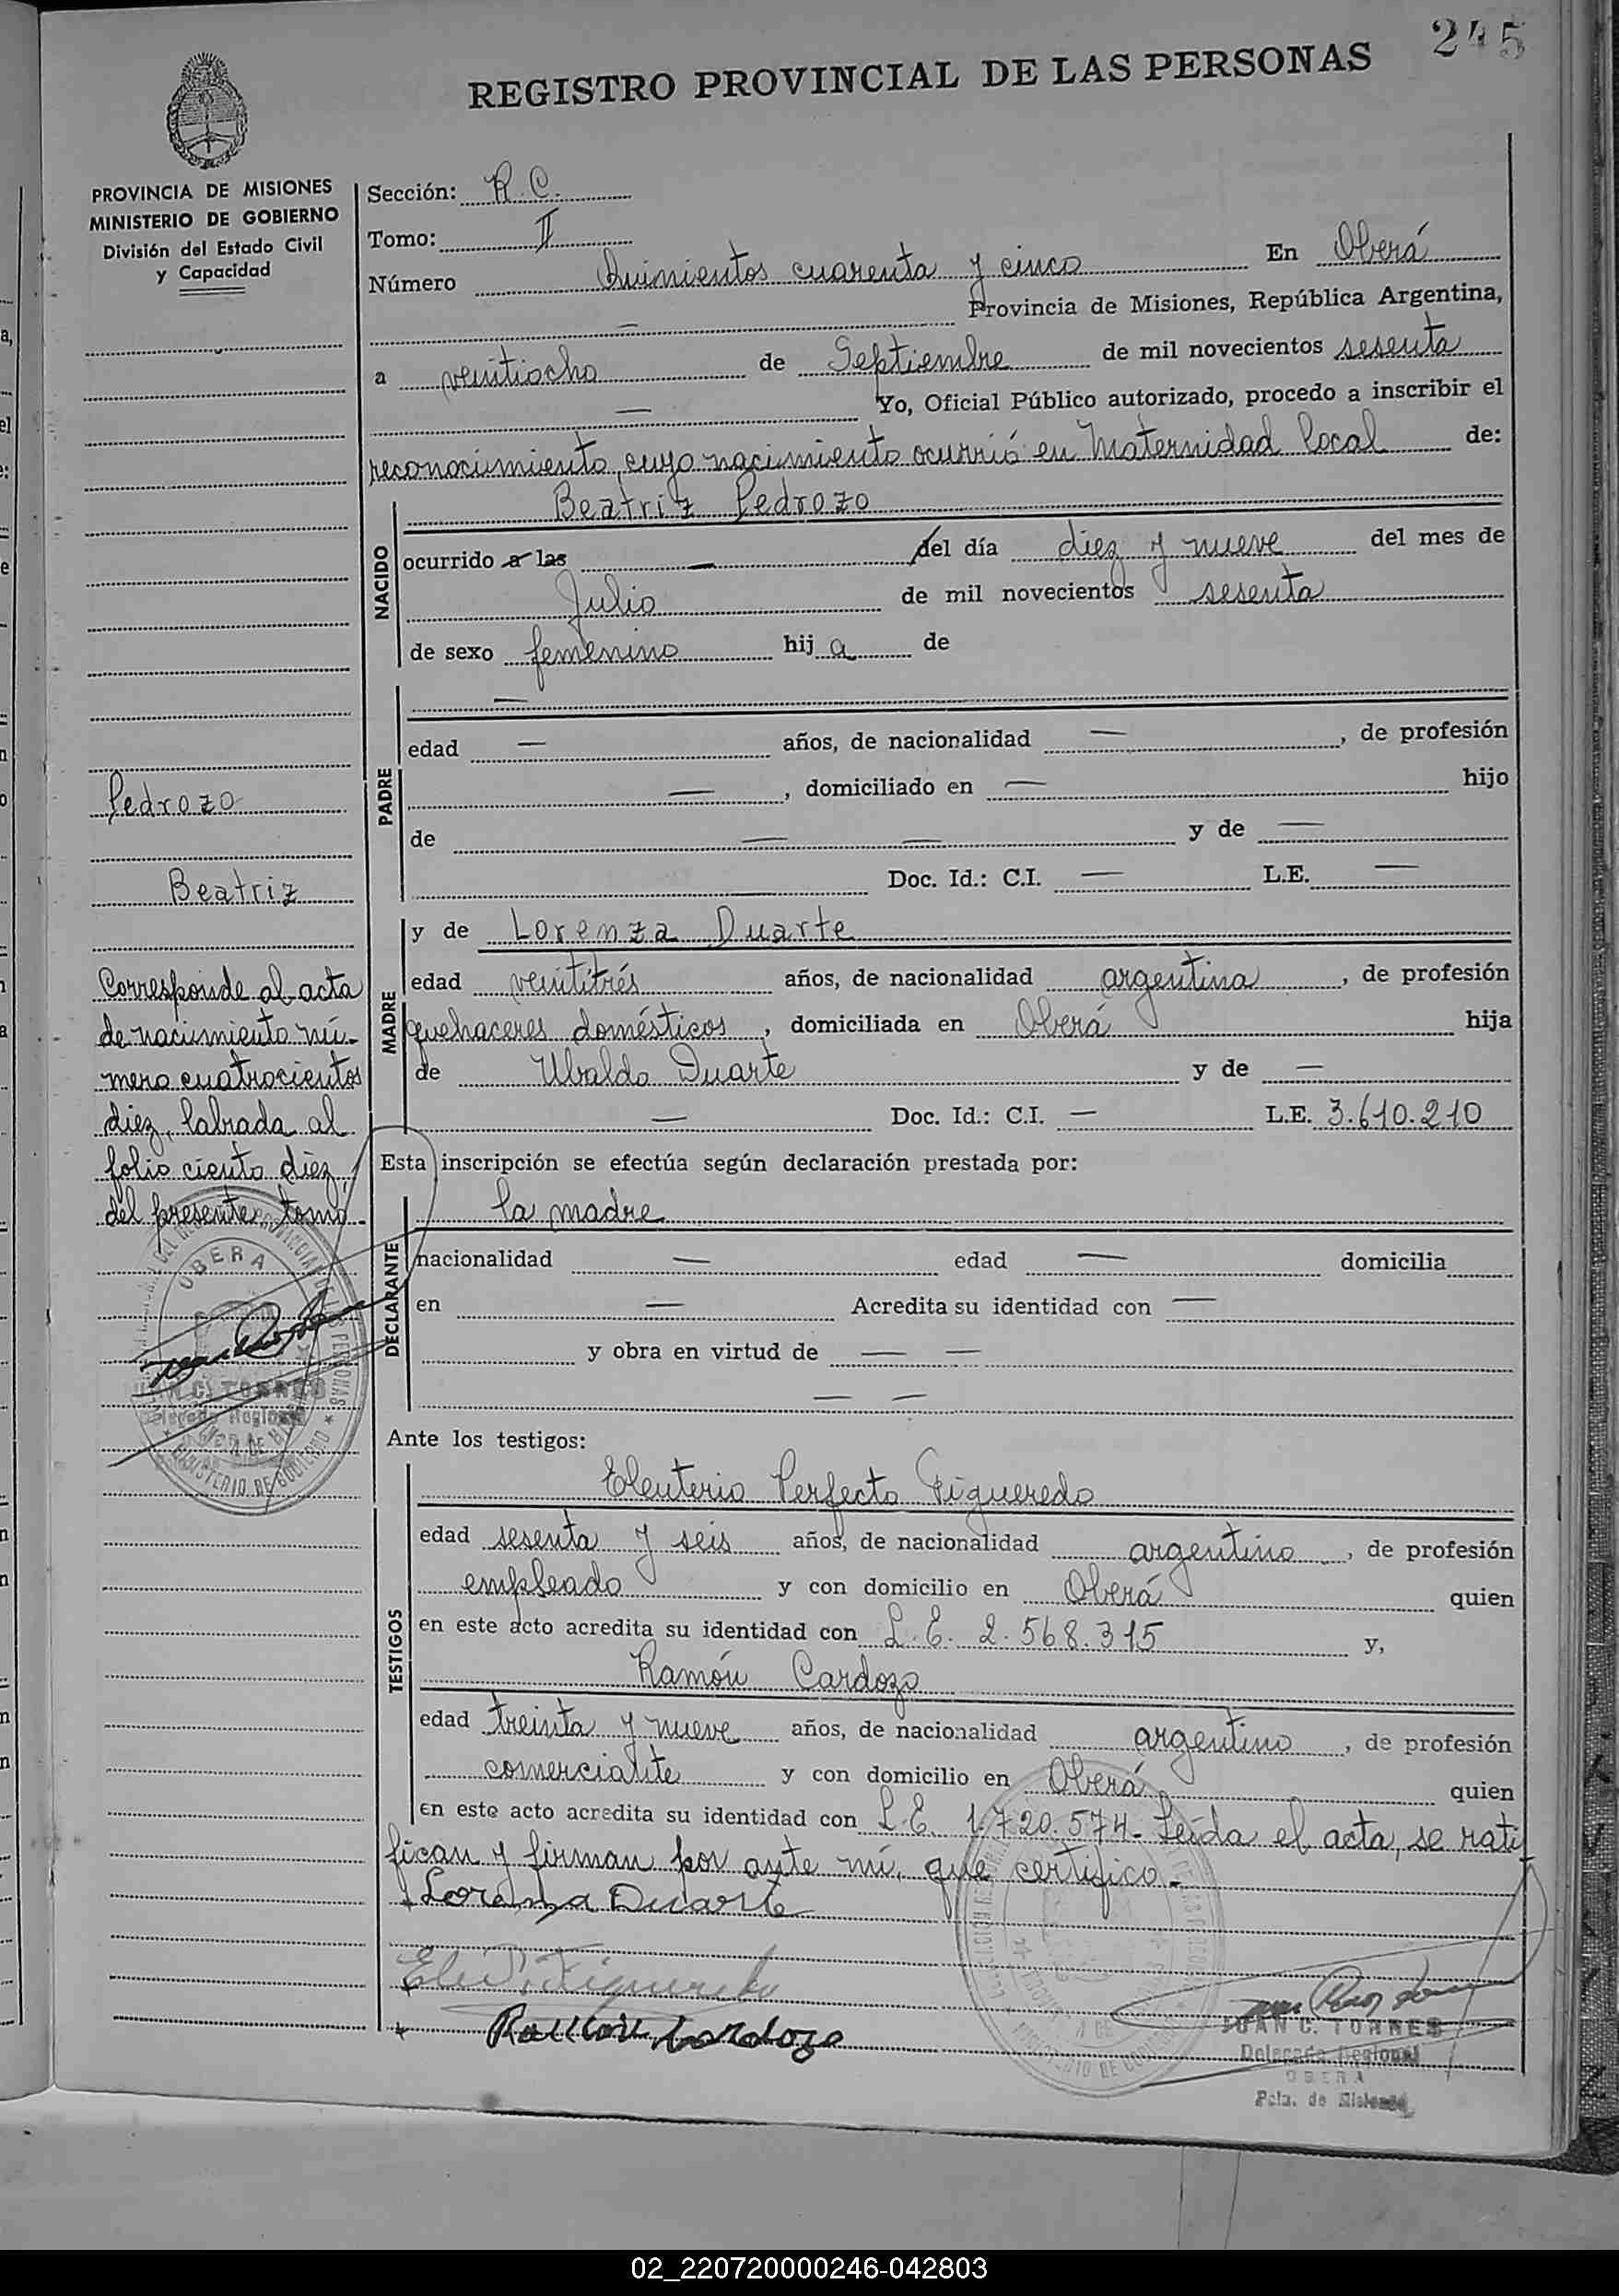 245
REGISTRO PROVINCIAL DE LAS PERSONAS
PROVINCIA DE MISIONES
MINISTERIO DE GOBIERNO
División del Estado Civil
y Capacidad
Sección: R. C.
Tomo: II
Número Quinientos cuarenta y cinco En Oberá
— Provincia de Misiones, República Argentina,
a veintiocho de Septiembre de mil novecientos sesenta
— Yo, Oficial Público autorizado, procedo a inscribir el
reconocimiento, cuyo nacimiento ocurrió en Maternidad local de:
NACIDO
Beatriz Pedrozo
ocurrido a las — del día diez y nueve del mes de
Julio de mil novecientos sesenta
de sexo femenino hij a de
PADRE
—
edad — años, de nacionalidad — , de profesión
— , domiciliado en — hijo
de — — y de —
Doc. Id.: C.I. — L.E. —
Pedrozo
Beatriz
Corresponde al acta
de nacimiento nú-
mero cuatrocientos
diez, labrada al
folio ciento diez,
del presente tomo.-
OBERA
JUAN C. TORRES
Delegado Regional
MINISTERIO DE GOBIERNO
MADRE
y de Lorenza Duarte
edad veintitrés años, de nacionalidad argentina , de profesión
quehaceres domésticos , domiciliada en Oberá hija
de Ubaldo Duarte y de —
— Doc. Id.: C.I. — L.E. 3.610.210
Esta inscripción se efectúa según declaración prestada por:
DECLARANTE
la madre
nacionalidad — edad — domicilia
en — Acredita su identidad con —
y obra en virtud de — —
— —
Ante los testigos:
TESTIGOS
Eleuterio Perfecto Figueredo
edad sesenta y seis años, de nacionalidad argentino , de profesión
empleado y con domicilio en Oberá quien
en este acto acredita su identidad con L. E. 2.568.315 y,
Ramón Cardozo
edad treinta y nueve años, de nacionalidad argentino , de profesión
comerciante y con domicilio en Oberá quien
en este acto acredita su identidad con L.E. 1.720.574.- Leída el acta, se rati
fican y firman por ante mí, que certifico.-
Lorenza Duarte
Ele P. Figueredo
Ramón Cardozo
JUAN C. TORRES
Delegado Regional
OBERA
Pcia. de Misiones
02_220720000246-042803